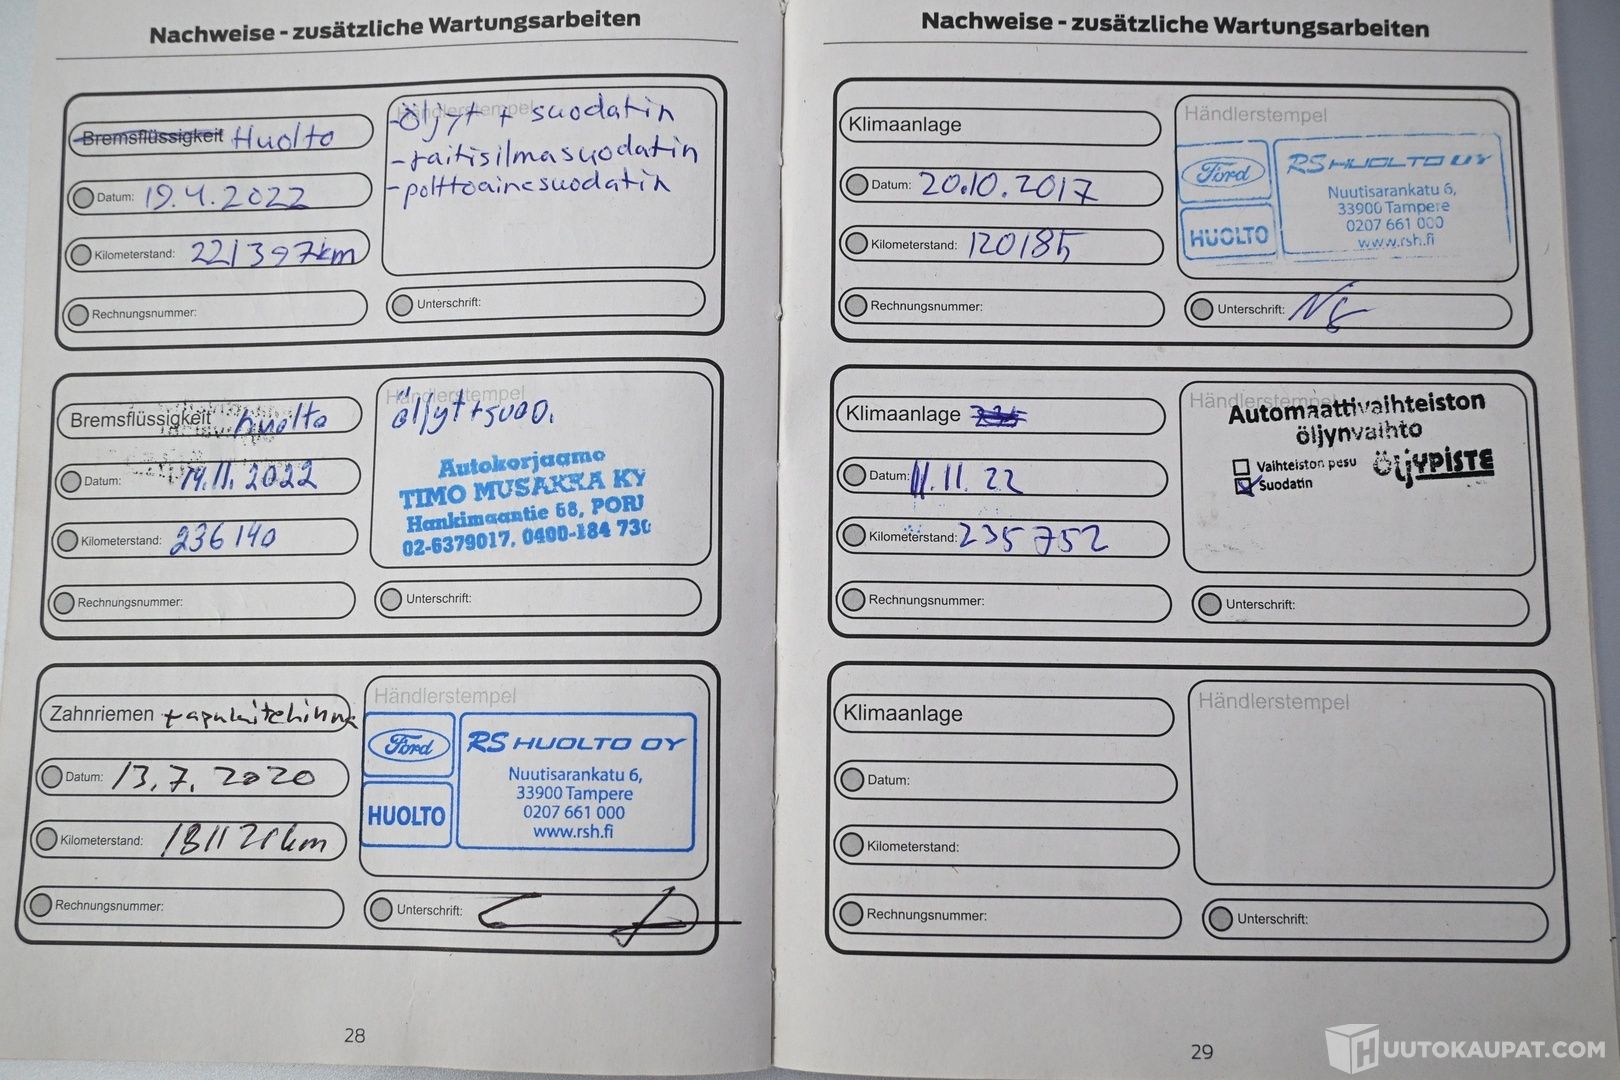 Nachweise - zusätzliche Wartungsarbeiten
Bremsflüssigkeit Huolto
Datum: 19.4.2022
Kilometerstand: 221397km
Rechnungsnummer:
Händlerstempel
-Öljyt + suodatin
-raitisilmasuodatin
-polttoainesuodatin
Unterschrift:
Bremsflüssigkeit huolto
Datum: 14.11.2022
Kilometerstand: 236140
Rechnungsnummer:
Händlerstempel
öljyt+suod.
Autokorjaamo
TIMO MUSAKKA KY
Hankimaantie 68, PORI
02-6379017, 0400-184 730
Unterschrift:
Zahnriemen
Datum: 13.7.2020
Kilometerstand: 181121km
Rechnungsnummer:
Händlerstempel
Ford
HUOLTO
RS HUOLTO OY
Nuutisarankatu 6,
33900 Tampere
0207 661 000
www.rsh.fi
Unterschrift:
28
Nachweise - zusätzliche Wartungsarbeiten
Klimaanlage
Datum: 20.10.2017
Kilometerstand: 120185
Rechnungsnummer:
Händlerstempel
Ford
HUOLTO
RS HUOLTO OY
Nuutisarankatu 6,
33900 Tampere
0207 661 000
www.rsh.fi
Unterschrift:
Klimaanlage
Datum: 11.11.22
Kilometerstand: 235752
Rechnungsnummer:
Händlerstempel
Automaattivaihteiston
öljynvaihto
Vaihteiston pesu
Suodatin
ÖljYPISTE
Unterschrift:
Klimaanlage
Datum:
Kilometerstand:
Rechnungsnummer:
Händlerstempel
Unterschrift:
29
HUUTOKAUPAT.COM